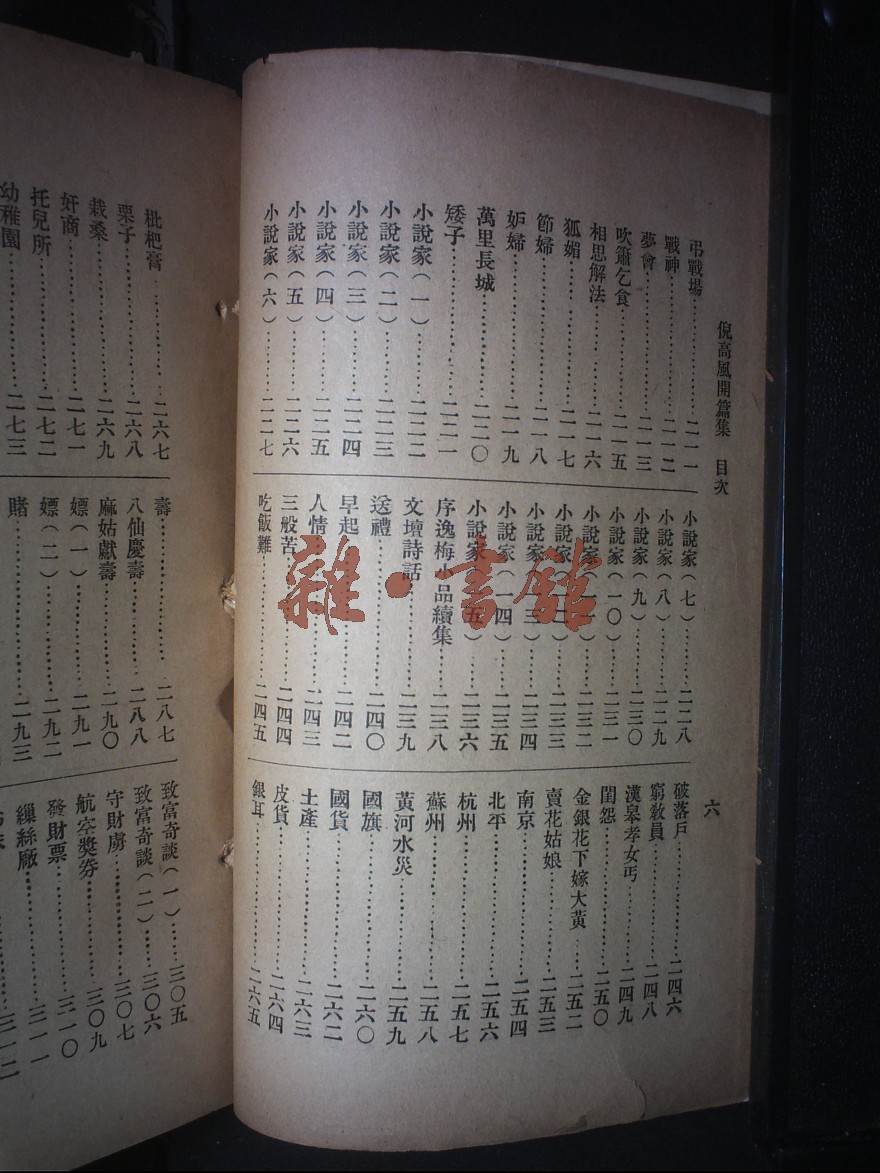 倪高風開篇集 目次 六
弔戰場……二一一
戰神……二一二
夢會……二一三
吹簫乞食……二一五
相思解法……二一六
狐媚……二一七
節婦……二一八
妒婦……二一九
萬里長城……二二〇
矮子……二二一
小說家（一）……二二二
小說家（二）……二二三
小說家（三）……二二四
小說家（四）……二二五
小說家（五）……二二六
小說家（六）……二二七
小說家（七）……二二八
小說家（八）……二二九
小說家（九）……二三〇
小說家（一〇）……二三一
小說家（一一）……二三二
小說家（一二）……二三三
小說家（一三）……二三四
小說家（一四）……二三五
小說家（一五）……二三六
序逸梅小品續集……二三八
文壇詩話……二三九
送禮……二四〇
早起……二四二
人情……二四三
三般苦……二四四
吃飯難……二四五
破落戶……二四六
窮教員……二四八
漢皋孝女丐……二四九
閨怨……二五〇
金銀花下嫁大黃……二五二
賣花姑娘……二五三
南京……二五四
北平……二五六
杭州……二五七
蘇州……二五八
黃河水災……二五九
國旗……二六〇
國貨……二六二
土產……二六三
皮貨……二六四
銀耳……二六五
枇杷膏……二六七
栗子……二六八
栽桑……二六九
奸商……二七一
托兒所……二七二
幼稚園……二七三
壽……二八七
八仙慶壽……二八八
麻姑獻壽……二九〇
嫖（一）……二九一
嫖（二）……二九二
賭……二九三
致富奇談（一）……三〇五
致富奇談（二）……三〇六
守財虜……三〇七
航空獎券……三〇九
發財票……三一〇
繅絲廠……三一一
三一二
雜·書館